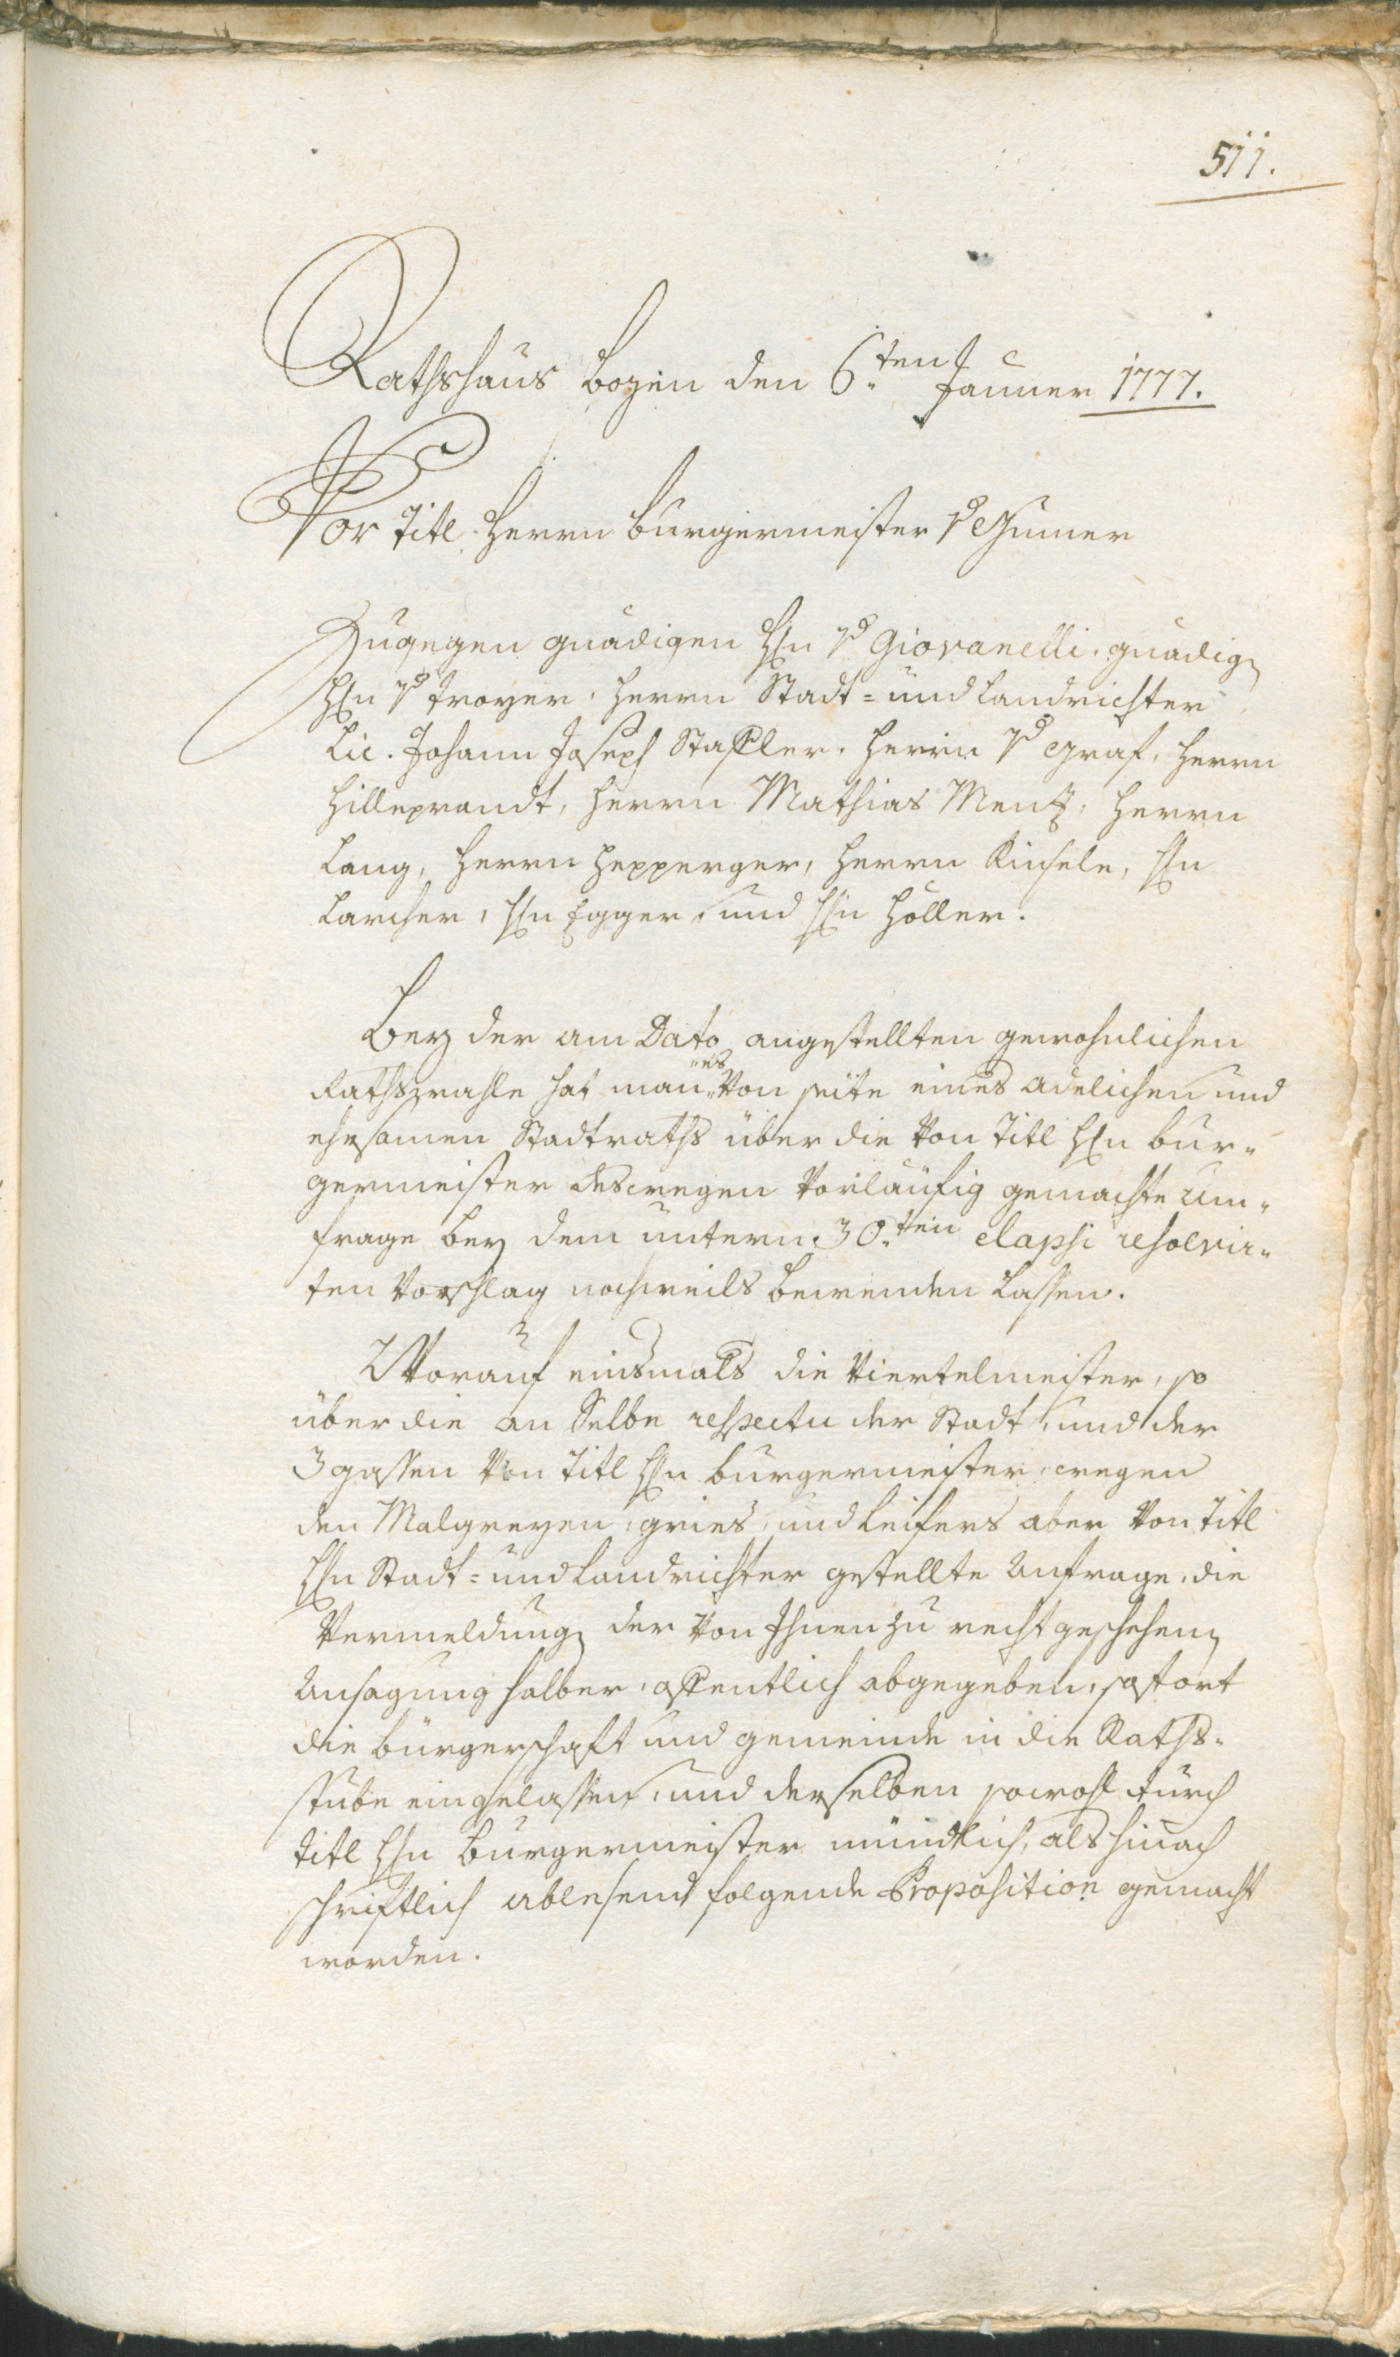 511.
Rathshaus Bozen den 6.ten Jänner 1777.
Vor Titl. Herrn Burgermeister v Gumer
Zugegen gnädigen Hln v Giovanelli, gnädig
Hln v Troyer, Herrn Stadt= und Landrichter
Lic. Johann Joseph Stafler, Herrn v Graf, Herrn
Hilleprandt, Herrn Mathias Menz, Herrn
Lang, Herrn Hepperger, Herrn Kinsele, Hln
Larcher, Hln Egger und Hln Höller.
Bey der am Dato angestellten gewohnlichen
Rathswahle hat man es von seite eines adelichen und
ehrsamen Stadtraths über die von Titl Hln Bur=
germeister deswegen vorläufig gemachte Um=
frage bey dem unterm 30.ten elapsi resolvir=
ten Vorschlag nochweils bewenden lassen.
Worauf einsmals die Viertelmeister, so
über die an Selbe respectu der Stadt und der
3 gassen von Titl Hln Burgermeister, wegen
den Malgreyen, gries, und Leifers aber von Titl
Hln Stadt= und Landrichter gestellte Anfrage, die
Vermeldung der von Ihnen zu recht geschehen
Ansagung halber, offentlich abgegeben, sofort
die Bürgerschaft und gemeinde in die Raths=
stube eingelassen, und derselben sowohl durch
Titl Hln Burgermeister mündlich, als hinach
schriftlich ablesend folgende Proposition gemacht
worden.